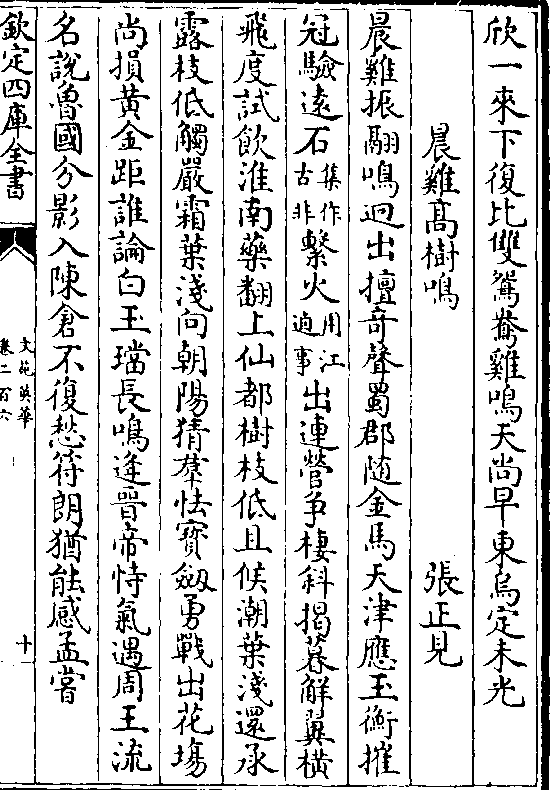 欣一來下復比雙鴛鴦雞鳴天尚早東烏定未光
晨雞髙樹鳴　張正見
晨雞振翮鳴迥出擅竒聲蜀郡随金馬天津應玉衡摧
冠驗逺石集作古非繫火用江逌事出連營爭棲斜揭暮解翼橫
飛度試飲淮南藥翻上仙都樹枝低且候潮葉淺還承
露枝低觸嚴霜葉淺向朝陽猜羣怯寳劔勇戰出花塲
尚損黄金距誰論白玉璫長鳴逢晉帝恃氣遇周王流
名說魯國分影入陳倉不復愁苻朗猶能感孟嘗
欽定四庫全書
文苑英華
卷二百六
十